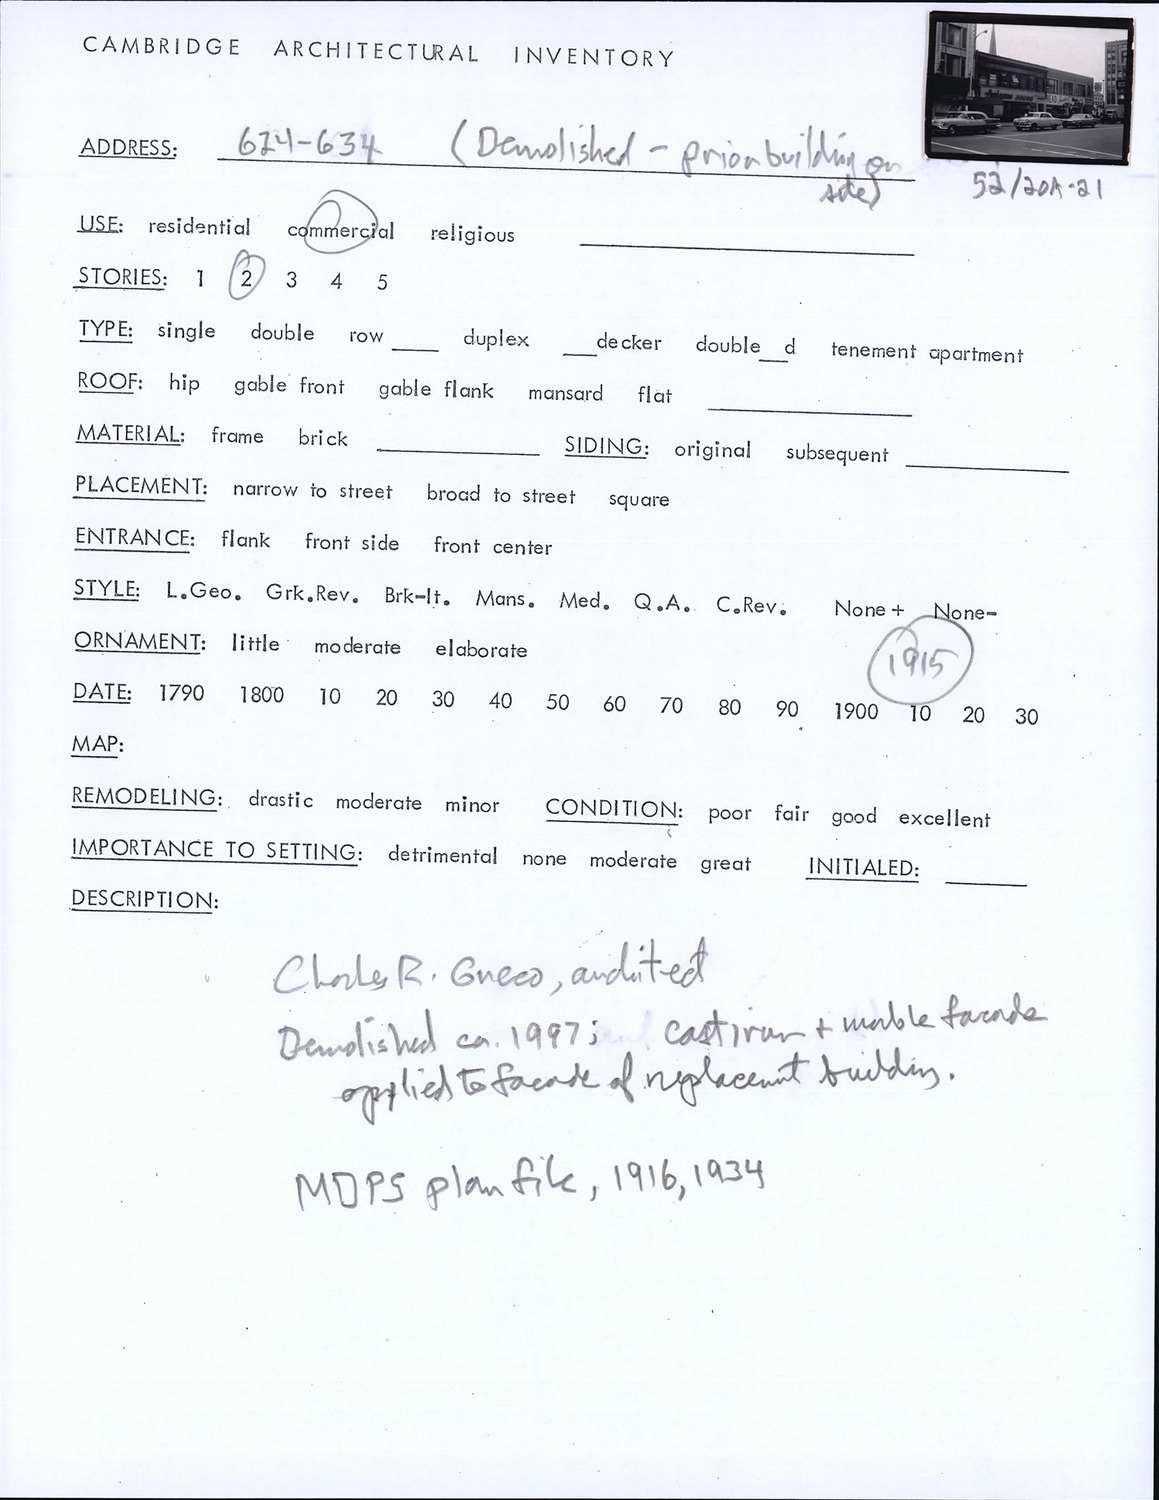 CAMBRIDGE ARCHITECTURAL INVENTORY
ADDRESS: 624-634 (Demolished - prior building on site)
52/20A-21
USE: residential commercial religious
STORIES: 1 2 3 4 5
TYPE: single double row ___ duplex ___decker double__d tenement apartment
ROOF: hip gable front gable flank mansard flat
MATERIAL: frame brick SIDING: original subsequent
PLACEMENT: narrow to street broad to street square
ENTRANCE: flank front side front center
STYLE: L.Geo. Grk.Rev. Brk-It. Mans. Med. Q.A. C.Rev. None+ None-
ORNAMENT: little moderate elaborate
1915
DATE: 1790 1800 10 20 30 40 50 60 70 80 90 1900 10 20 30
MAP:
REMODELING: drastic moderate minor CONDITION: poor fair good excellent
IMPORTANCE TO SETTING: detrimental none moderate great INITIALED:
DESCRIPTION:
Charles R. Greco, architect
Demolished ca. 1997; cast iron + marble facade
applied to facade of replacement building.
MDPS plan file, 1916, 1934